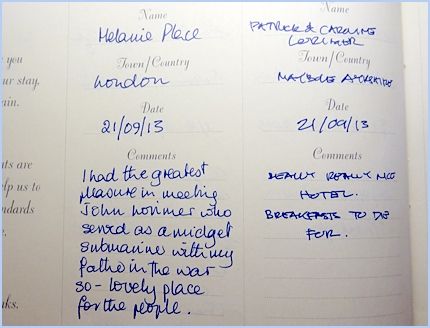 you
ur stay.
ain.
nts are
elp us to
ndards
e.
nks.
Name
Melanie Place
Town/Country
London
Date
21/09/13
Comments
I had the greatest
pleasure in meeting
John Lorimer who
served as a midget
submarine with my
father in the war
so - lovely place
for the people.
Name
PATRICK & CAROLINE
LORIMER
Town/Country
MAYBOLE AYRSHIRE
Date
21/09/13
Comments
REALLY REALLY NICE
HOTEL.
BREAKFASTS TO DIE
FOR.